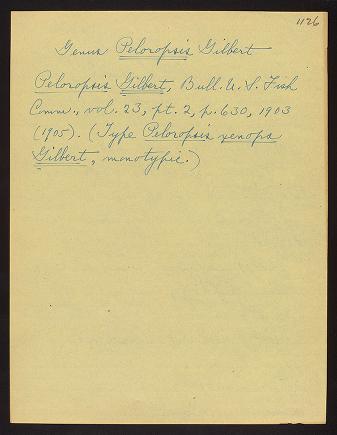 1126
Genus Peloropsis Gilbert
Peloropsis Gilbert, Bull. U. S. Fish
Comm., vol. 23, pt. 2, p. 630, 1903
(1905). (Type Peloropsis xenops
Gilbert, monotypic.)